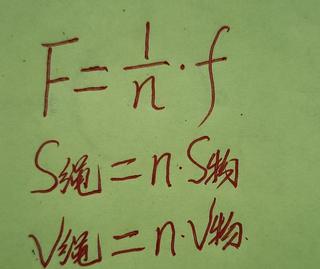 F=1/n·f
S绳=n·S物
V绳=n·V物